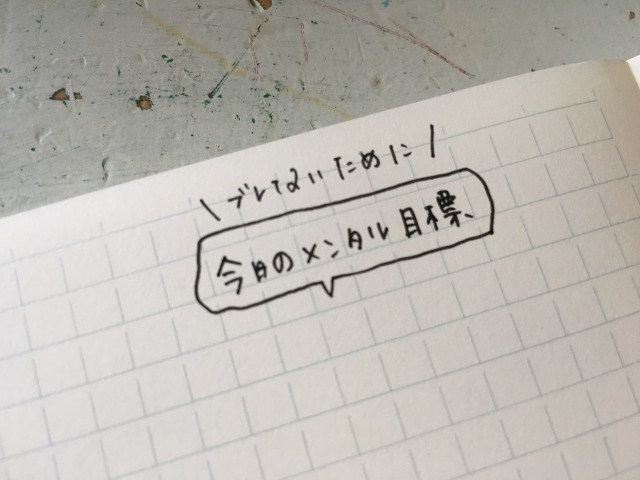 \ ブレないために /
今日のメンタル目標